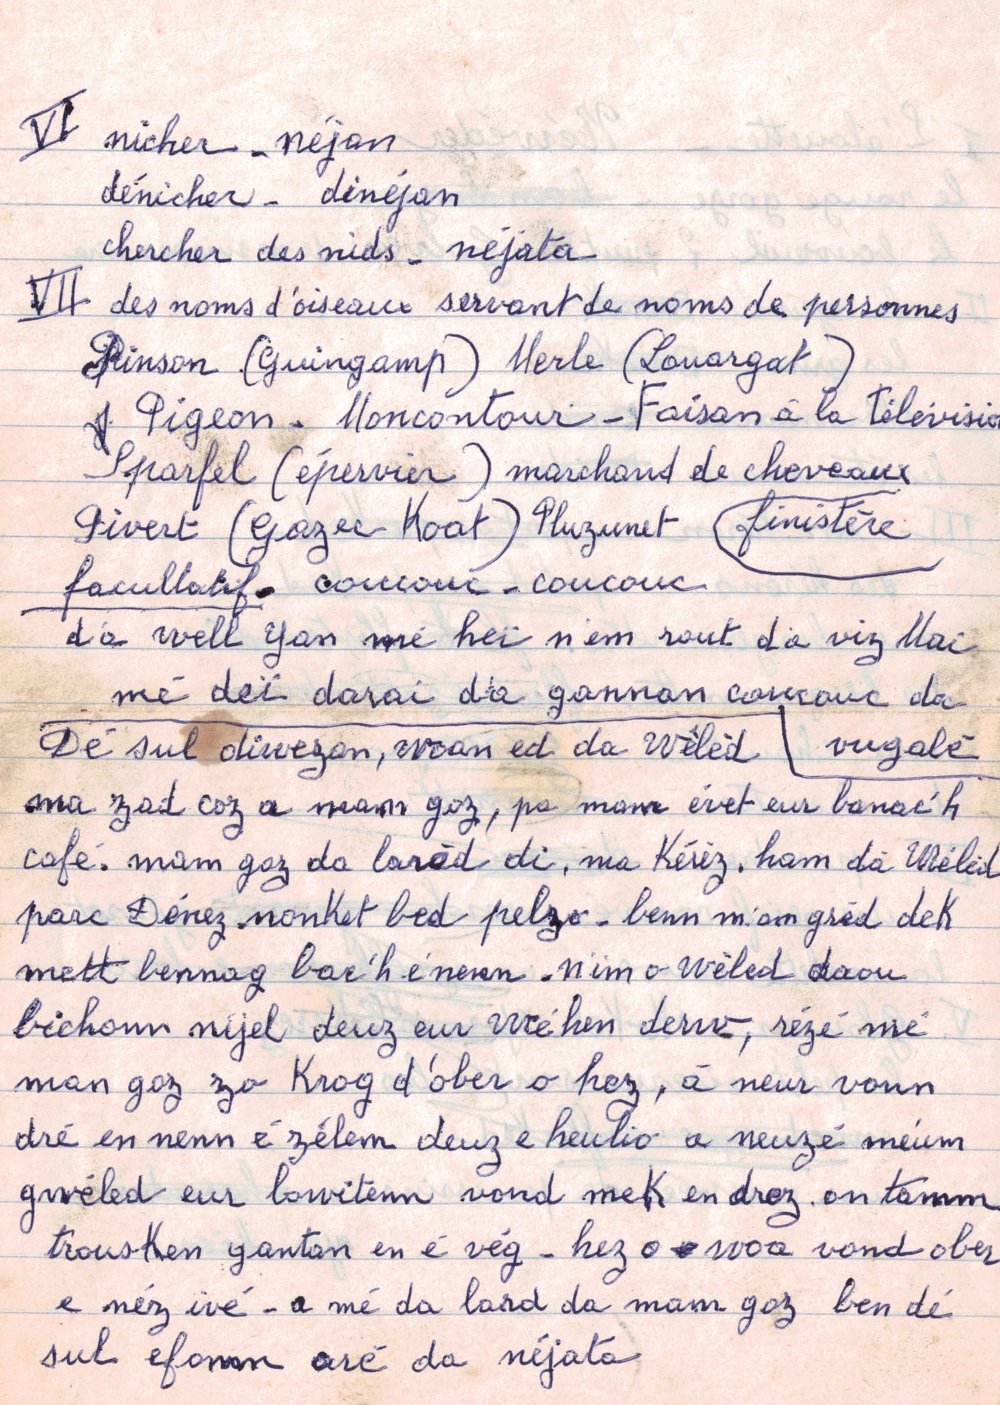 VI nicher - néjan
dénicher - dinéjan
chercher des nids - néjata
VII des noms d'oiseaux servant de noms de personnes
Pinson (Guingamp) Merle (Louargat)
Pigeon - Moncontour - Faisan à la Télévision
Sparfel (épervier) marchand de cheveaux
Pivert (Gazec Koat) Pluzunet finistère
facultatif - coucouc - coucouc
d'a well Yan mé heï n'em rout d'a viz Mai
mé deï darai d'a gannan coucouc da
vugalé
Dé sul diwezan, woan ed da Wéléd
ma zad coz a mam goz, pa mam évet eur banac'h
café. mam goz da laréd di, ma Kéréz. ham da Wéléd
parc Dénez nonket bed pelzo - benn m'am gréd deK
mett bennag bac'h é nenn - n'im o wéled daou
bichonn nijel deuz eur Wéhen derw, rézé mé
man goz zo Krog d'ober o hez, à neur vonn
dré en nenn é zélem deuz e heulio a neuzé méum
gwéled eur lowitenn vond meK en droz on tamm
trousKen gantan en é vég - hez o woa vond ober
e néz ivé - a mé da lard da mam goz ben dé
sul efomm aré da néjata